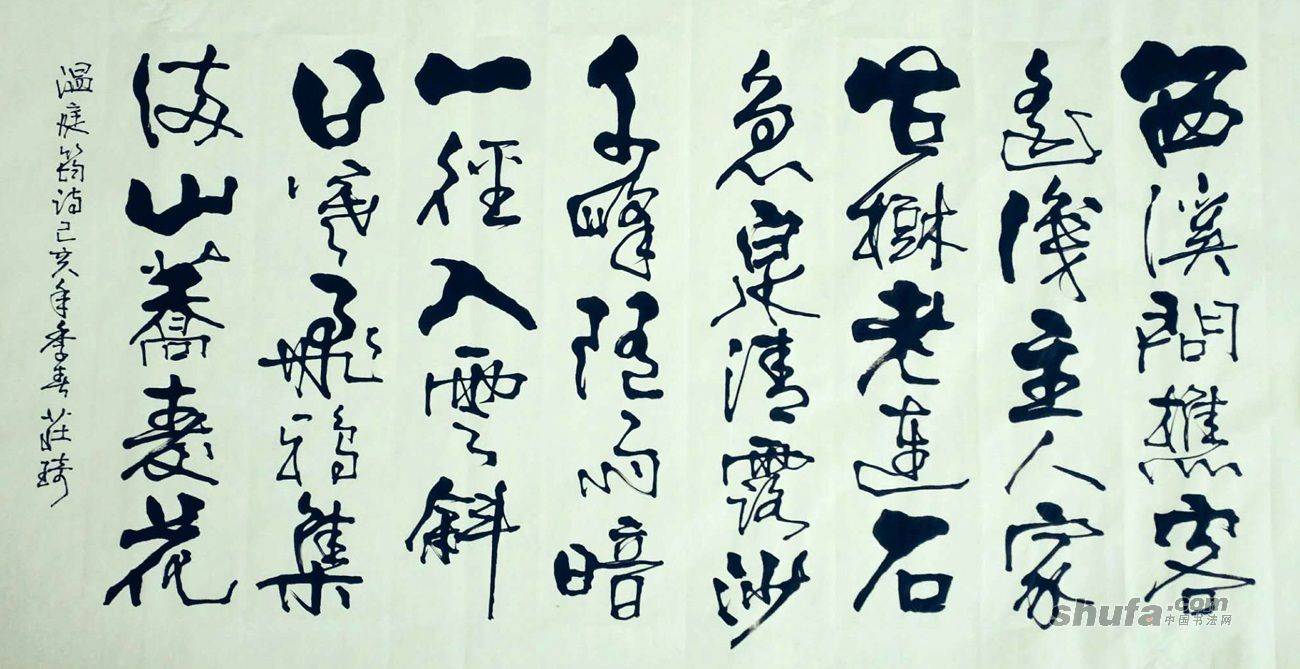 西溪問樵客
遙識主人家
古樹老連石
急泉清露沙
千峰隨雨暗
一徑入雲斜
日暮飛鴉集
滿山蕎麥花
温庭筠詩己亥年季春莊琦
shufa.com
中国书法网